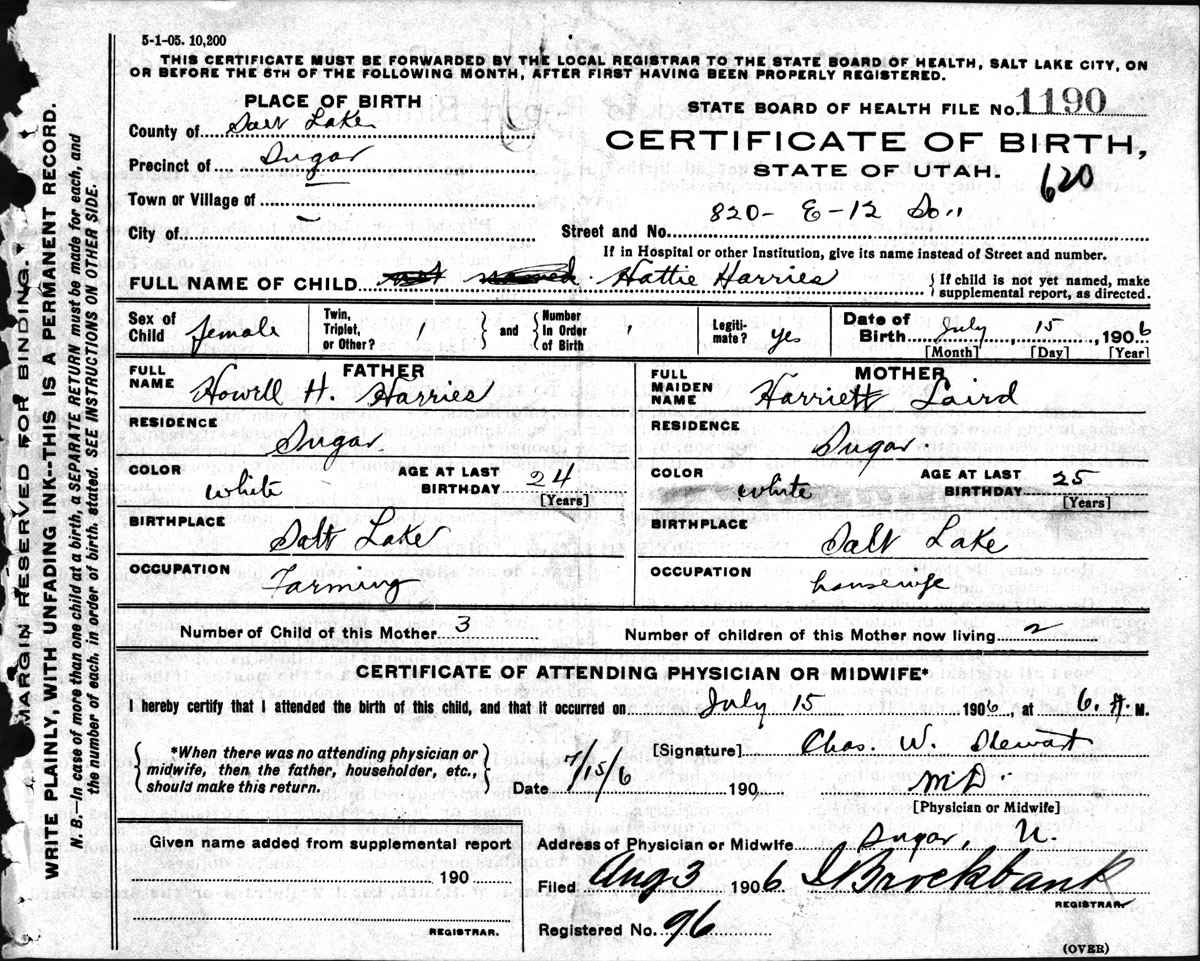 5-1-05. 10,200
THIS CERTIFICATE MUST BE FORWARDED BY THE LOCAL REGISTRAR TO THE STATE BOARD OF HEALTH, SALT LAKE CITY, ON
OR BEFORE THE 5TH OF THE FOLLOWING MONTH, AFTER FIRST HAVING BEEN PROPERLY REGISTERED.
PLACE OF BIRTH
STATE BOARD OF HEALTH FILE No. 1190
County of Salt Lake
CERTIFICATE OF BIRTH,
Precinct of Sugar
STATE OF UTAH.
620
Town or Village of
820- E-12 So
City of
Street and No.
If in Hospital or other Institution, give its name instead of Street and number.
FULL NAME OF CHILD not named. Hattie Harries
If child is not yet named, make
supplemental report, as directed.
Sex of Child female
Twin, Triplet, or Other?
and
Number In Order of Birth
Legiti-mate? yes
Date of Birth July, 15, 1906
[Month] [Day] [Year]
FATHER
FULL NAME Howell H. Harries
RESIDENCE
Sugar
COLOR white
AGE AT LAST BIRTHDAY 24
[Years]
BIRTHPLACE
Salt Lake
OCCUPATION
Farming
MOTHER
FULL MAIDEN NAME Harriett Laird
RESIDENCE
Sugar.
COLOR white
AGE AT LAST BIRTHDAY 25
[Years]
BIRTHPLACE
Salt Lake
OCCUPATION
housewife
Number of Child of this Mother 3
Number of children of this Mother now living 2
CERTIFICATE OF ATTENDING PHYSICIAN OR MIDWIFE*
I hereby certify that I attended the birth of this child, and that it occurred on July 15 1906, at 6. A. M.
*When there was no attending physician or
midwife, then the father, householder, etc.,
should make this return.
[Signature] Chas. W. Stewart
Date 7/15/6 190
MD.
[Physician or Midwife]
Given name added from supplemental report
190
REGISTRAR.
Address of Physician or Midwife Sugar, U.
Filed Aug 3 1906 Brockbank
REGISTRAR
Registered No. 96
(OVER)
MARGIN RESERVED FOR BINDING.
WRITE PLAINLY, WITH UNFADING INK--THIS IS A PERMANENT RECORD.
N. B.—In case of more than one child at a birth, a SEPARATE RETURN must be made for each, and
the number of each, in order of birth, stated. SEE INSTRUCTIONS ON OTHER SIDE.